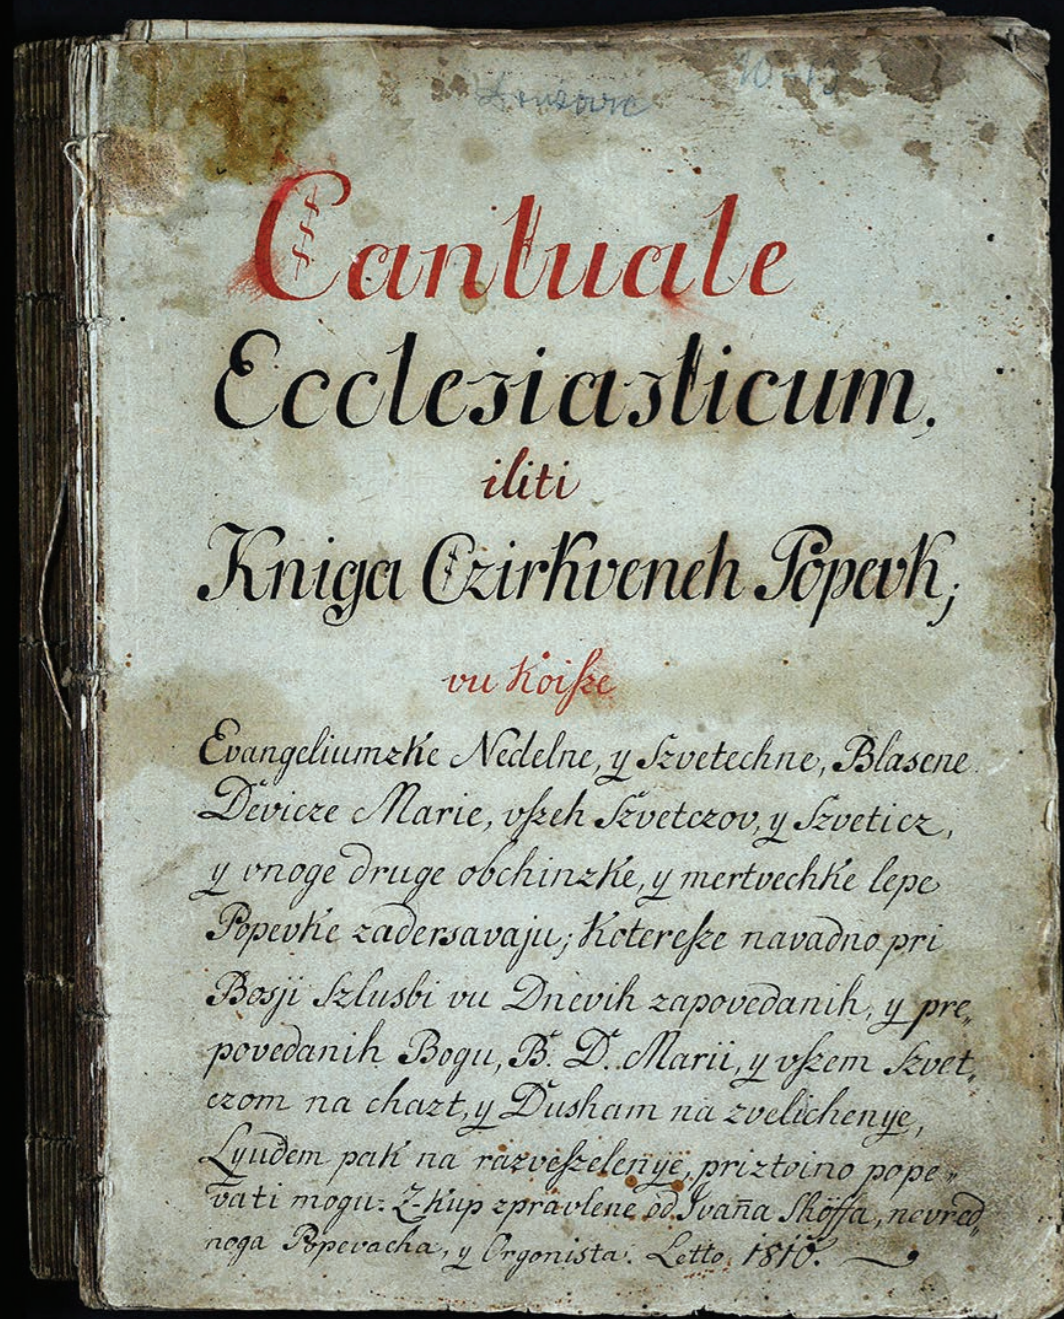 Cantuale
Ecclesiasticum,
iliti
Kniga Czirkveneh Popevk;
vu koiſze
Evangeliumzke Nedelne, y Szvetechne, Blasene
Devicze Marie, vſzeh Szvetczov, y Szveticz,
y vnoge druge obchinzke, y mertvechke lepe
Popevke zadersavaju; Kotereſze navadno pri
Bosji Szlusbi vu Dnevih zapovedanih, y pre„
povedanih Bogu, B. D. Marii, y vſzem Szvet„
czom na chazt, y Dusham na zvelichenye,
Lyudem pak na razveſzelenye, priztoino pope„
vati mogu: Z-kup zpravlene od Ivan̄a Sköffa, nevred„
noga Popevacha, y Orgonista. Letto 1810.